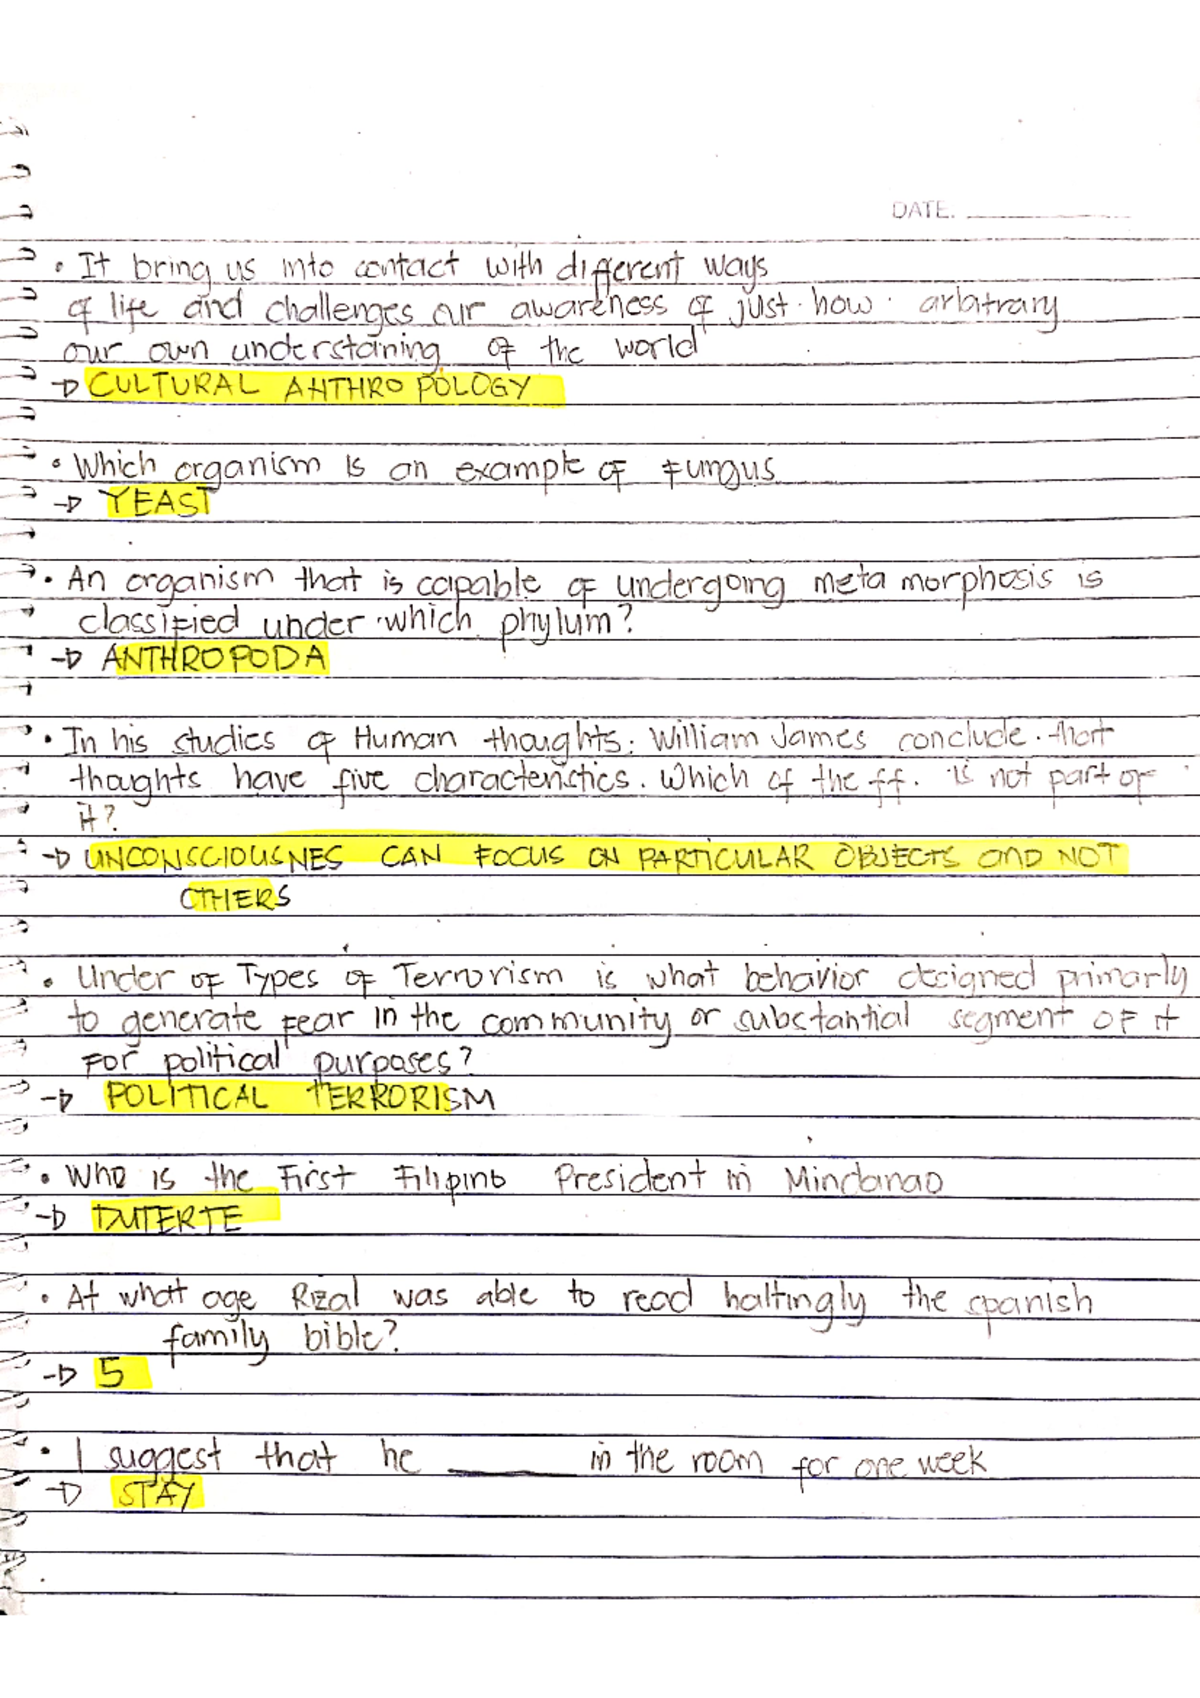 DATE.
• It bring us into contact with different ways
of life and challenges our awareness of just how arbitrary
our own understaining of the world
→ CULTURAL ANTHROPOLOGY
• Which organism is an example of fungus
→ YEAST
• An organism that is capable of undergoing metamorphosis is
classified under which phylum?
→ ANTHROPODA
• In his studies of Human thoughts; William James conclude that
thoughts have five characteristics. Which of the ff. is not part of
it?
→ UNCONSCIOUSNES CAN FOCUS ON PARTICULAR OBJECTS and NOT
OTHERS
• Under of Types of Terrorism is what behavior designed primarly
to generate fear in the community or substantial segment of it
For political purposes?
→ POLITICAL TERRORISM
• Who is the First Filipino President in Mindanao
→ DUTERTE
• At what age Rizal was able to read haltingly the spanish
family bible?
→ 5
• I suggest that he ______ in the room for one week
→ STAY